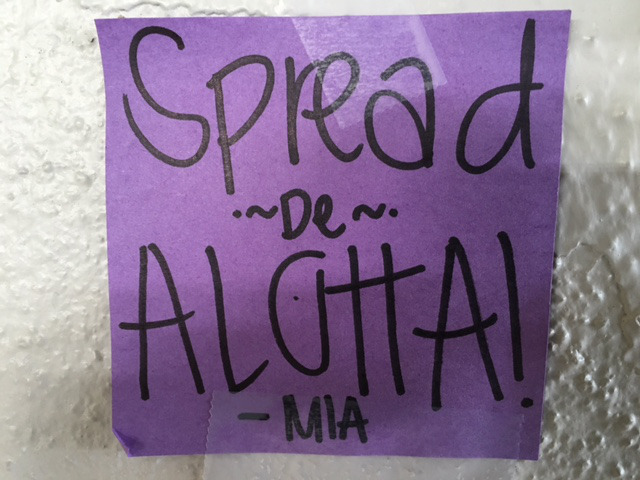 Spread
~De~
ALOHA!
- MIA